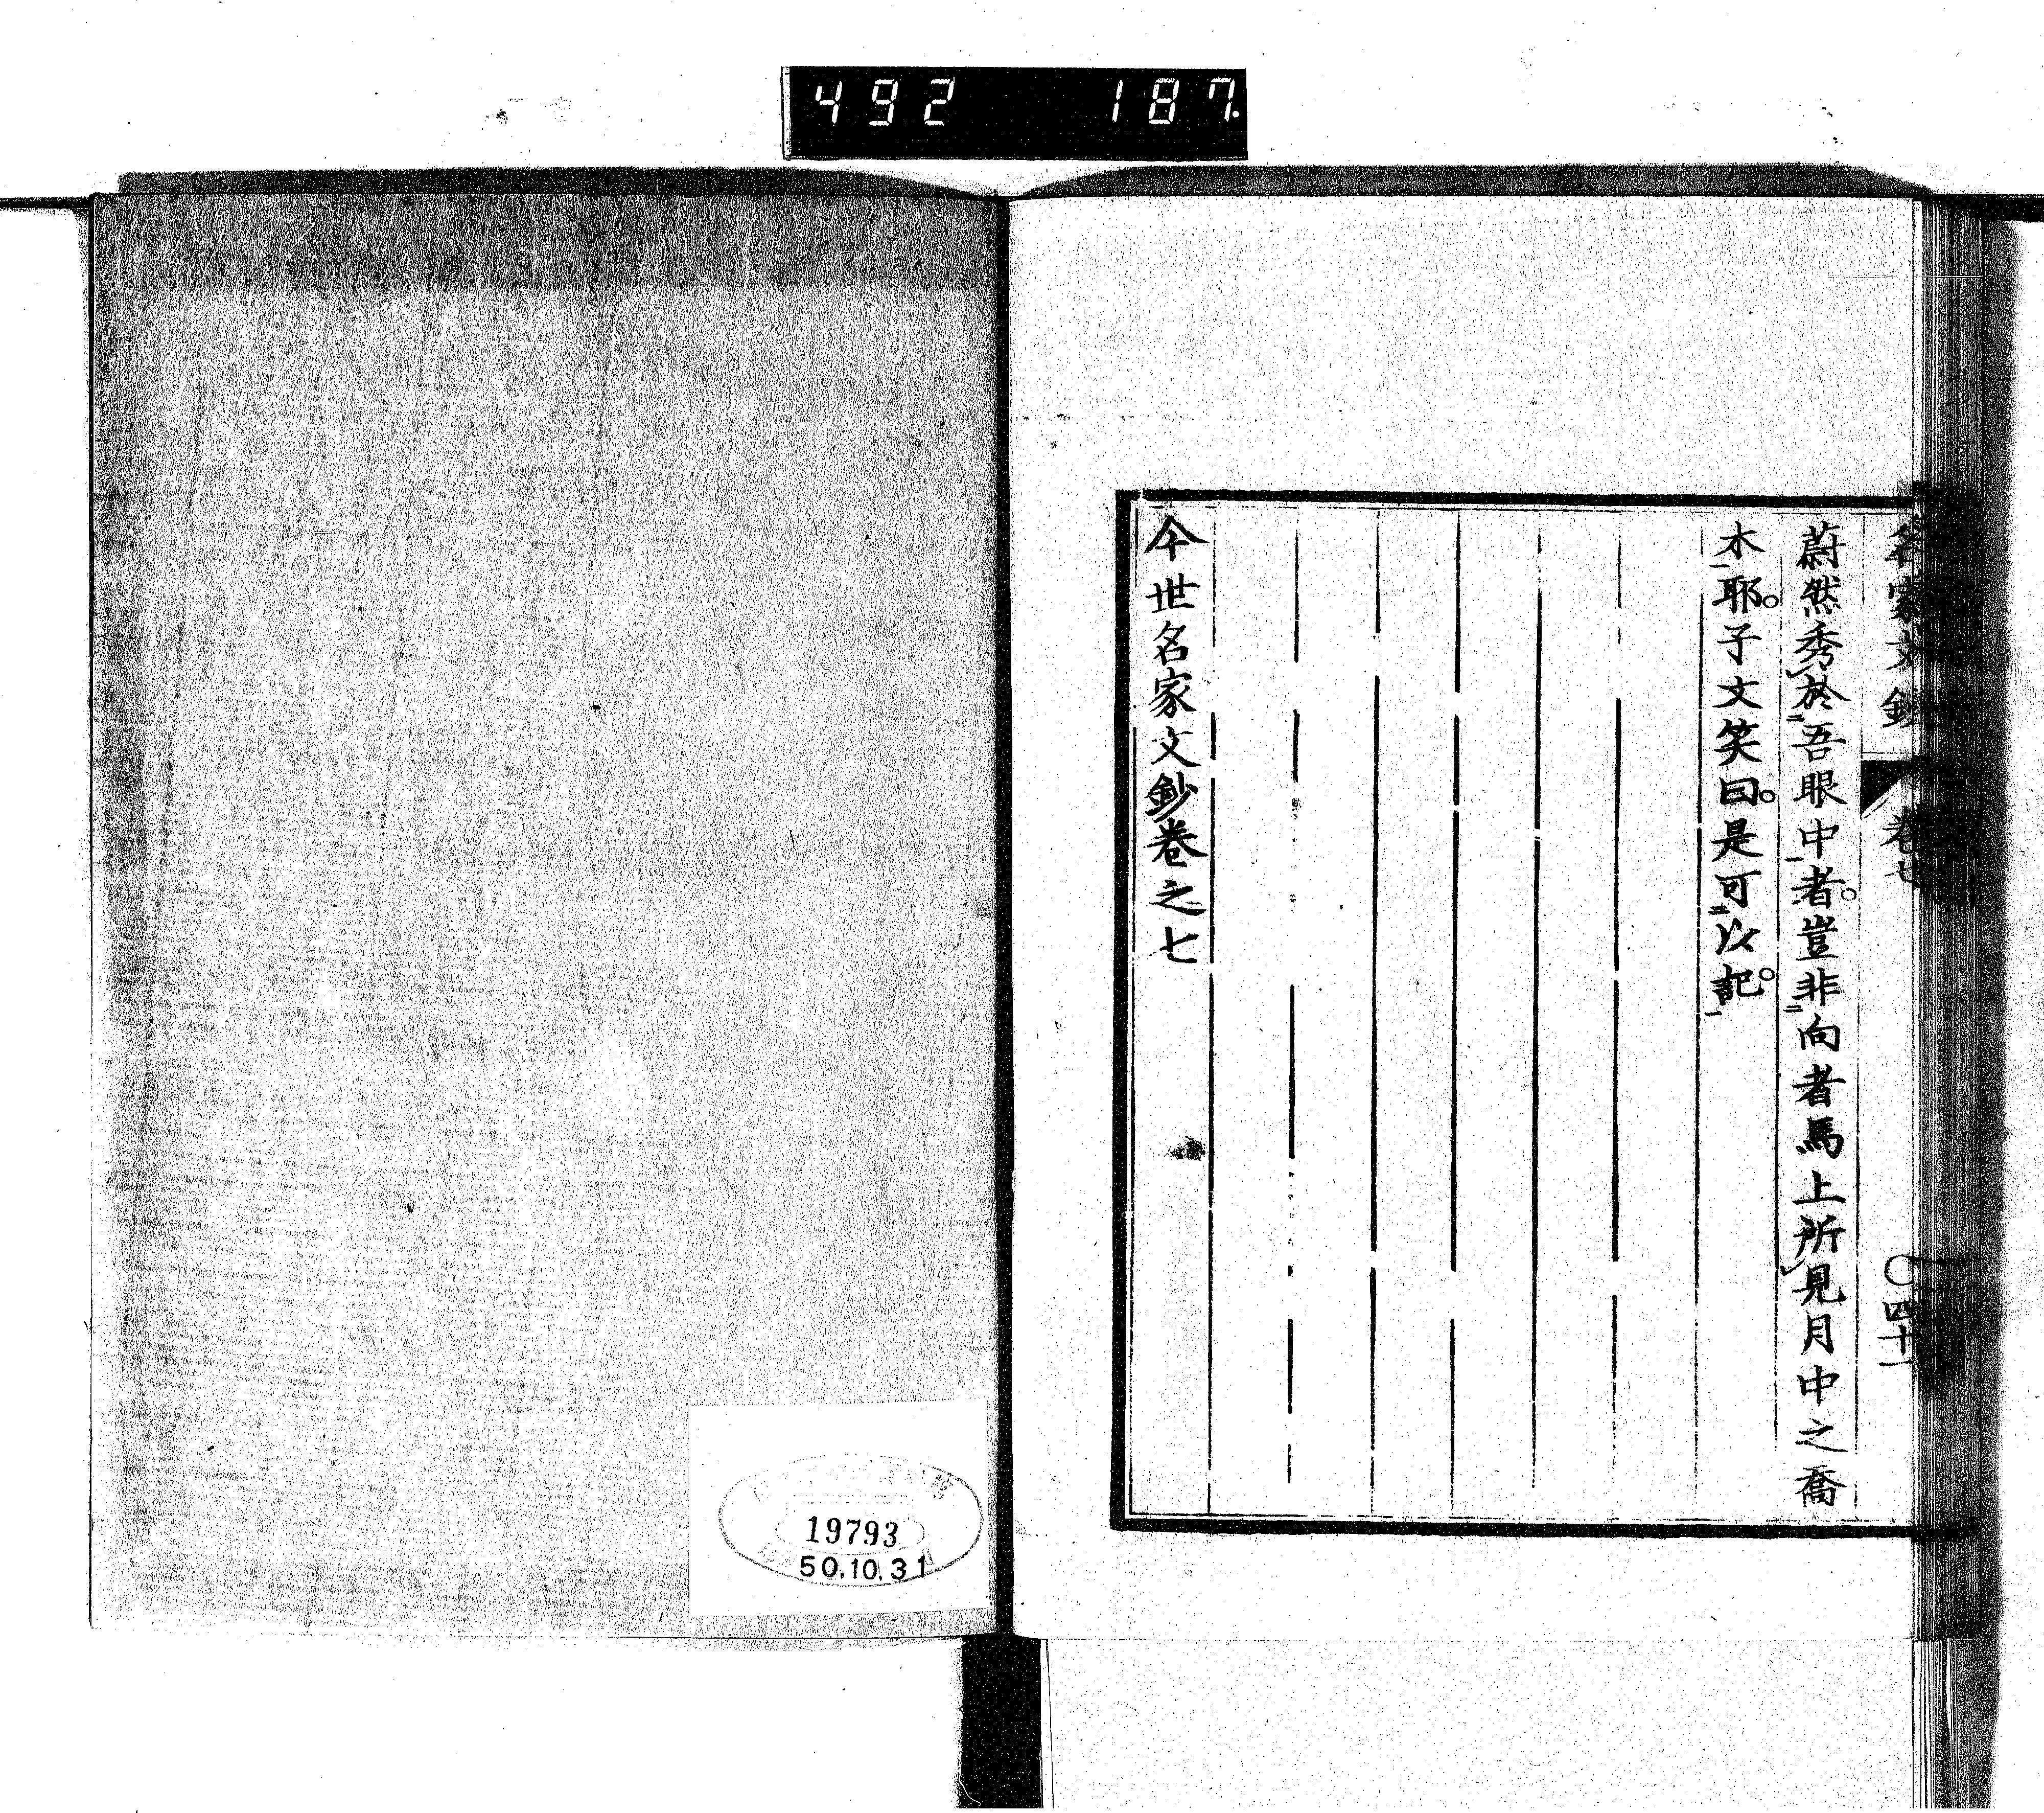 492 187.
名家文鈔 卷七 〇四十一
蔚然秀於吾眼中者。豈非向者馬上所見月中之喬
木耶。子文笑曰。是可以記。
今世名家文鈔卷之七
19793
50.10.31